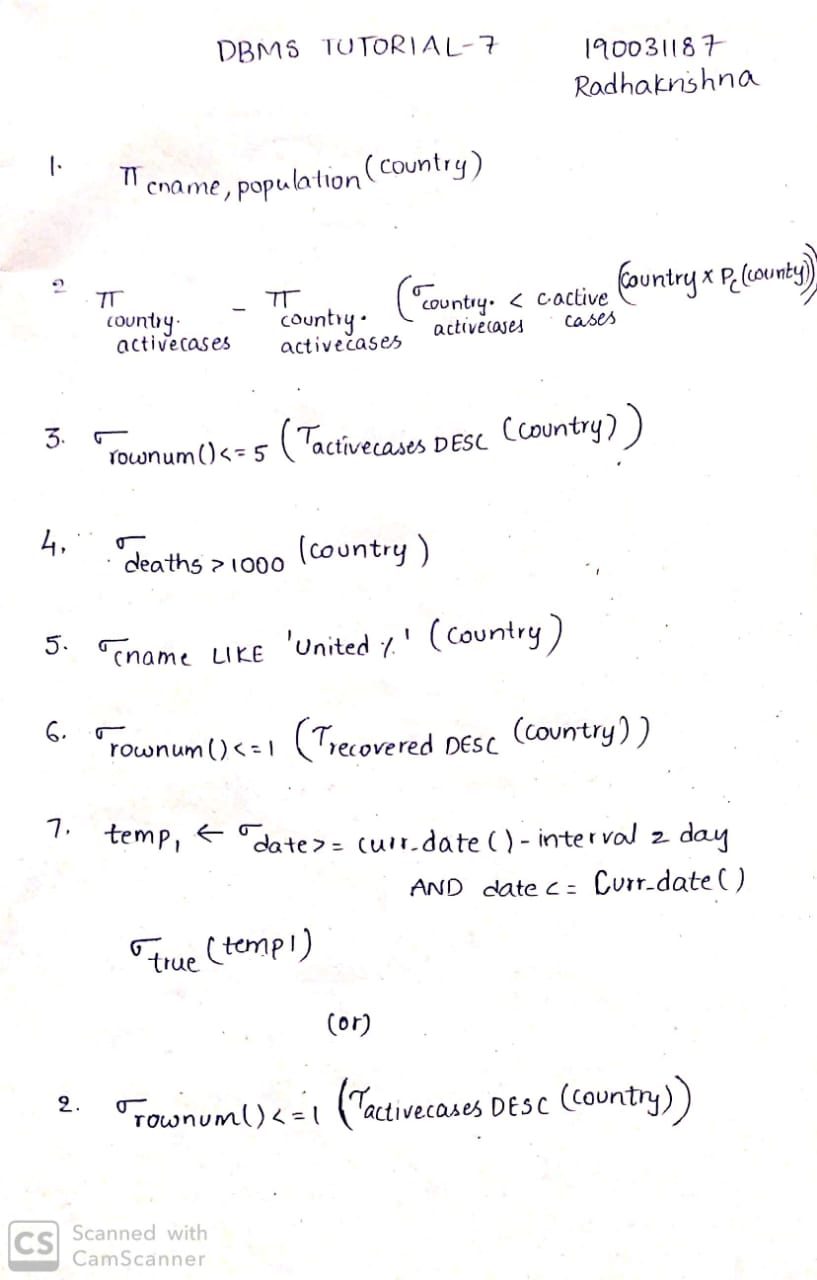 DBMS TUTORIAL-7 190031187
Radhakrishna
1. π cname, population (country)
2 π country. activecases - π country. activecases (σ country. activecases < c.active cases (Country x ρc (county)))
3. σ rownum()<=5 (τ activecases DESC (country))
4. σ deaths > 1000 (country)
5. σ cname LIKE 'United %' (country)
6. σ rownum()<=1 (τ recovered DESC (country))
7. temp1 ← σ date>= curr-date() - interval 2 day
AND date <= Curr-date()
σ true (temp1)
(or)
2. σ rownum()<=1 (τ activecases DESC (country))
CS Scanned with
CamScanner